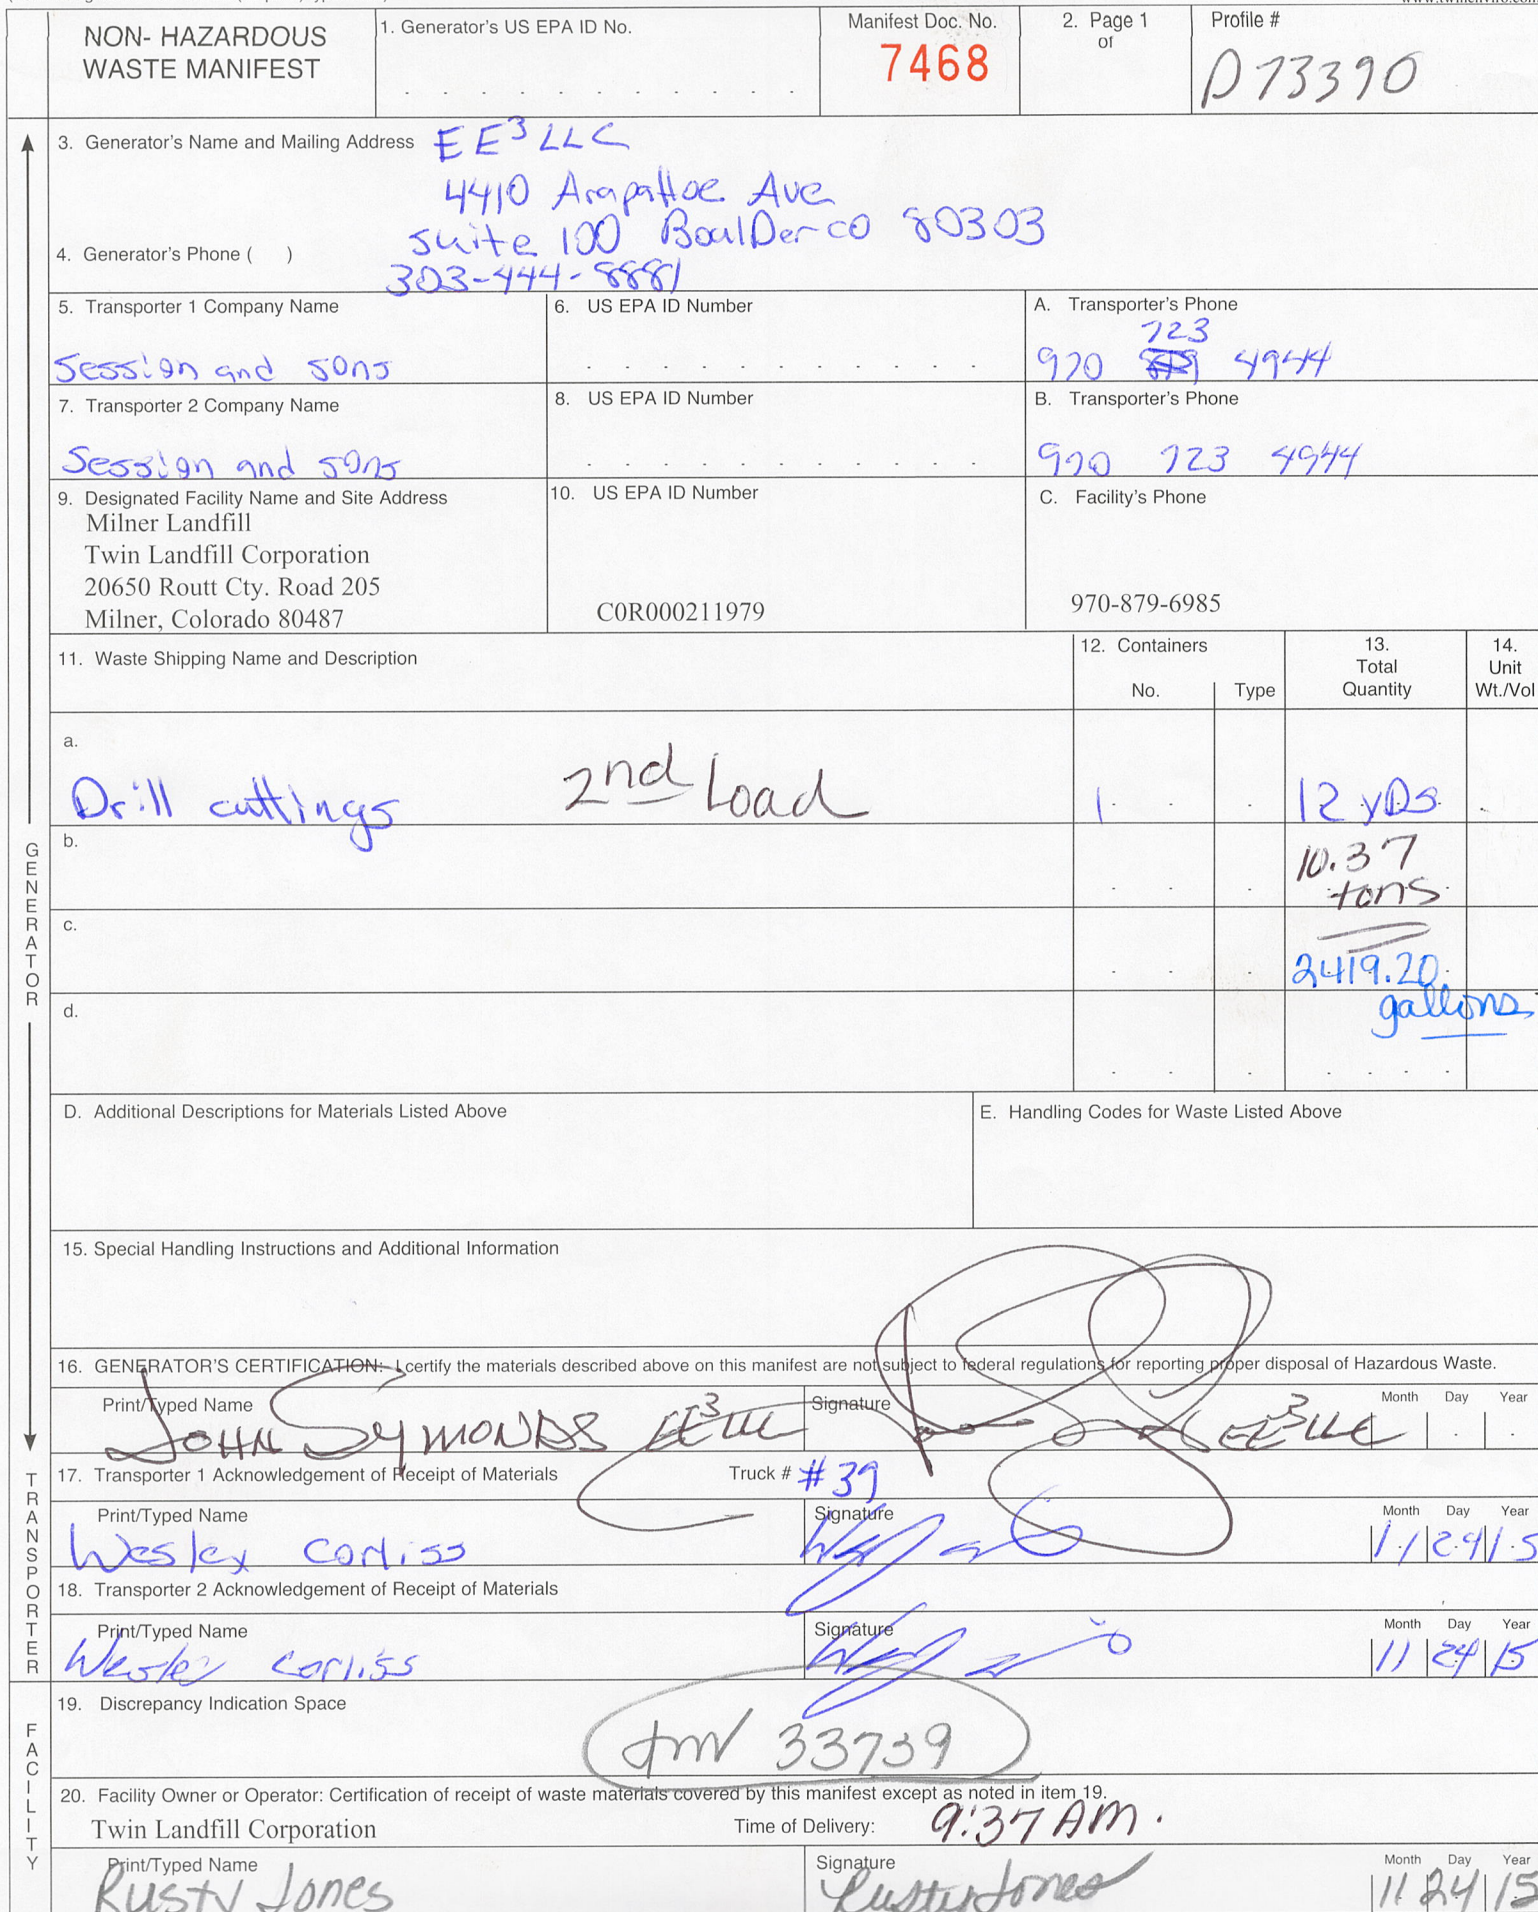 NON- HAZARDOUS
WASTE MANIFEST
1. Generator's US EPA ID No.
Manifest Doc. No.
7468
2. Page 1
of
Profile #
D73390
3. Generator's Name and Mailing Address EE³ LLC
4410 Arapahoe Ave
Suite 100 BoulDer co 80303
4. Generator's Phone ( )
303-444-8881
5. Transporter 1 Company Name
Session and sons
6. US EPA ID Number
A. Transporter's Phone
723
970 4944
7. Transporter 2 Company Name
Session and sons
8. US EPA ID Number
B. Transporter's Phone
970 723 4944
9. Designated Facility Name and Site Address
Milner Landfill
Twin Landfill Corporation
20650 Routt Cty. Road 205
Milner, Colorado 80487
10. US EPA ID Number
C0R000211979
C. Facility's Phone
970-879-6985
11. Waste Shipping Name and Description
12. Containers
No. Type
13.
Total
Quantity
14.
Unit
Wt./Vol
a.
Drill cuttings 2nd Load 1 12 yDs
b.
10.37
tons
c.
2419.20
d.
gallons
D. Additional Descriptions for Materials Listed Above
E. Handling Codes for Waste Listed Above
15. Special Handling Instructions and Additional Information
16. GENERATOR'S CERTIFICATION: I certify the materials described above on this manifest are not subject to federal regulations for reporting proper disposal of Hazardous Waste.
Print/Typed Name
JOHN SYMONDS EE³LLC
Signature
EE³LLC
Month Day Year
17. Transporter 1 Acknowledgement of Receipt of Materials
Truck # #39
Print/Typed Name
Wesley Corliss
Signature
Month Day Year
11 24 15
18. Transporter 2 Acknowledgement of Receipt of Materials
Print/Typed Name
Wesley Corliss
Signature
Month Day Year
11 24 15
19. Discrepancy Indication Space
33739
20. Facility Owner or Operator: Certification of receipt of waste materials covered by this manifest except as noted in item 19.
Twin Landfill Corporation
Time of Delivery: 9:37 AM.
Print/Typed Name
Rusty Jones
Signature
Rusty Jones
Month Day Year
11 24 15
GENERATOR
TRANSPORTER
FACILITY